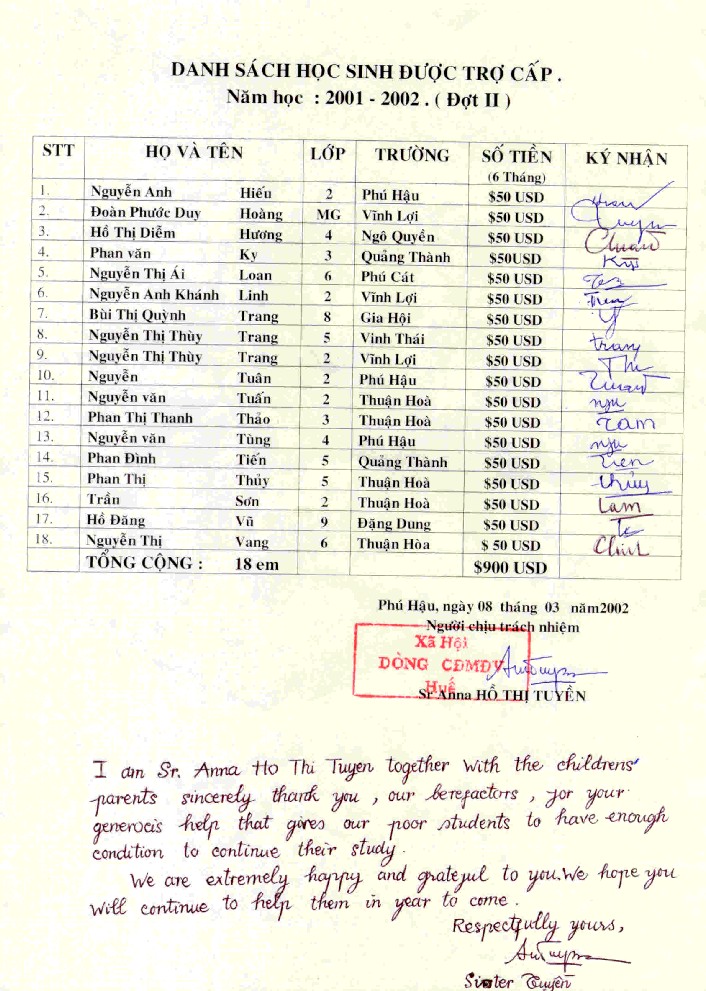 DANH SÁCH HỌC SINH ĐƯỢC TRỢ CẤP .
Năm học : 2001 - 2002 . ( Đợt II )
STT HỌ VÀ TÊN LỚP TRƯỜNG SỐ TIỀN KÝ NHẬN
(6 Tháng)
1. Nguyễn Anh Hiếu 2 Phú Hậu $50 USD
2. Đoàn Phước Duy Hoàng MG Vĩnh Lợi $50 USD
3. Hồ Thị Diễm Hương 4 Ngô Quyền $50 USD
4. Phan văn Ky 3 Quảng Thành $50USD
5. Nguyễn Thị Ái Loan 6 Phú Cát $50 USD
6. Nguyễn Anh Khánh Linh 2 Vĩnh Lợi $50 USD
7. Bùi Thị Quỳnh Trang 8 Gia Hội $50 USD
8. Nguyễn Thị Thùy Trang 5 Vinh Thái $50 USD trang
9. Nguyễn Thị Thùy Trang 2 Vĩnh Lợi $50 USD
10. Nguyễn Tuân 2 Phú Hậu $50 USD
11. Nguyễn văn Tuấn 2 Thuận Hoà $50 USD
12. Phan Thị Thanh Thảo 3 Thuận Hoà $50 USD Tam
13. Nguyễn văn Tùng 4 Phú Hậu $50 USD
14. Phan Đình Tiến 5 Quảng Thành $50 USD
15. Phan Thị Thủy 5 Thuận Hoà $50 USD thủy
16. Trần Sơn 2 Thuận Hoà $50 USD Lam
17. Hồ Đăng Vũ 9 Đặng Dung $50 USD
18. Nguyễn Thị Vang 6 Thuận Hòa $ 50 USD
TỔNG CỘNG : 18 em $900 USD
Phú Hậu, ngày 08 tháng 03 năm2002
Người chịu trách nhiệm
Xã Hội
DÒNG CĐMĐV
Huế
Sr Anna HỒ THỊ TUYỀN
I am Sr. Anna Ho Thi Tuyen together with the childrens'
parents sincerely thank you , our berefactors , for your
generocis help that gives our poor students to have enough
condition to continue their study .
We are extremely happy and grateful to you. We hope you
will continue to help them in year to come .
Respectfully yours,
Sister Tuyền